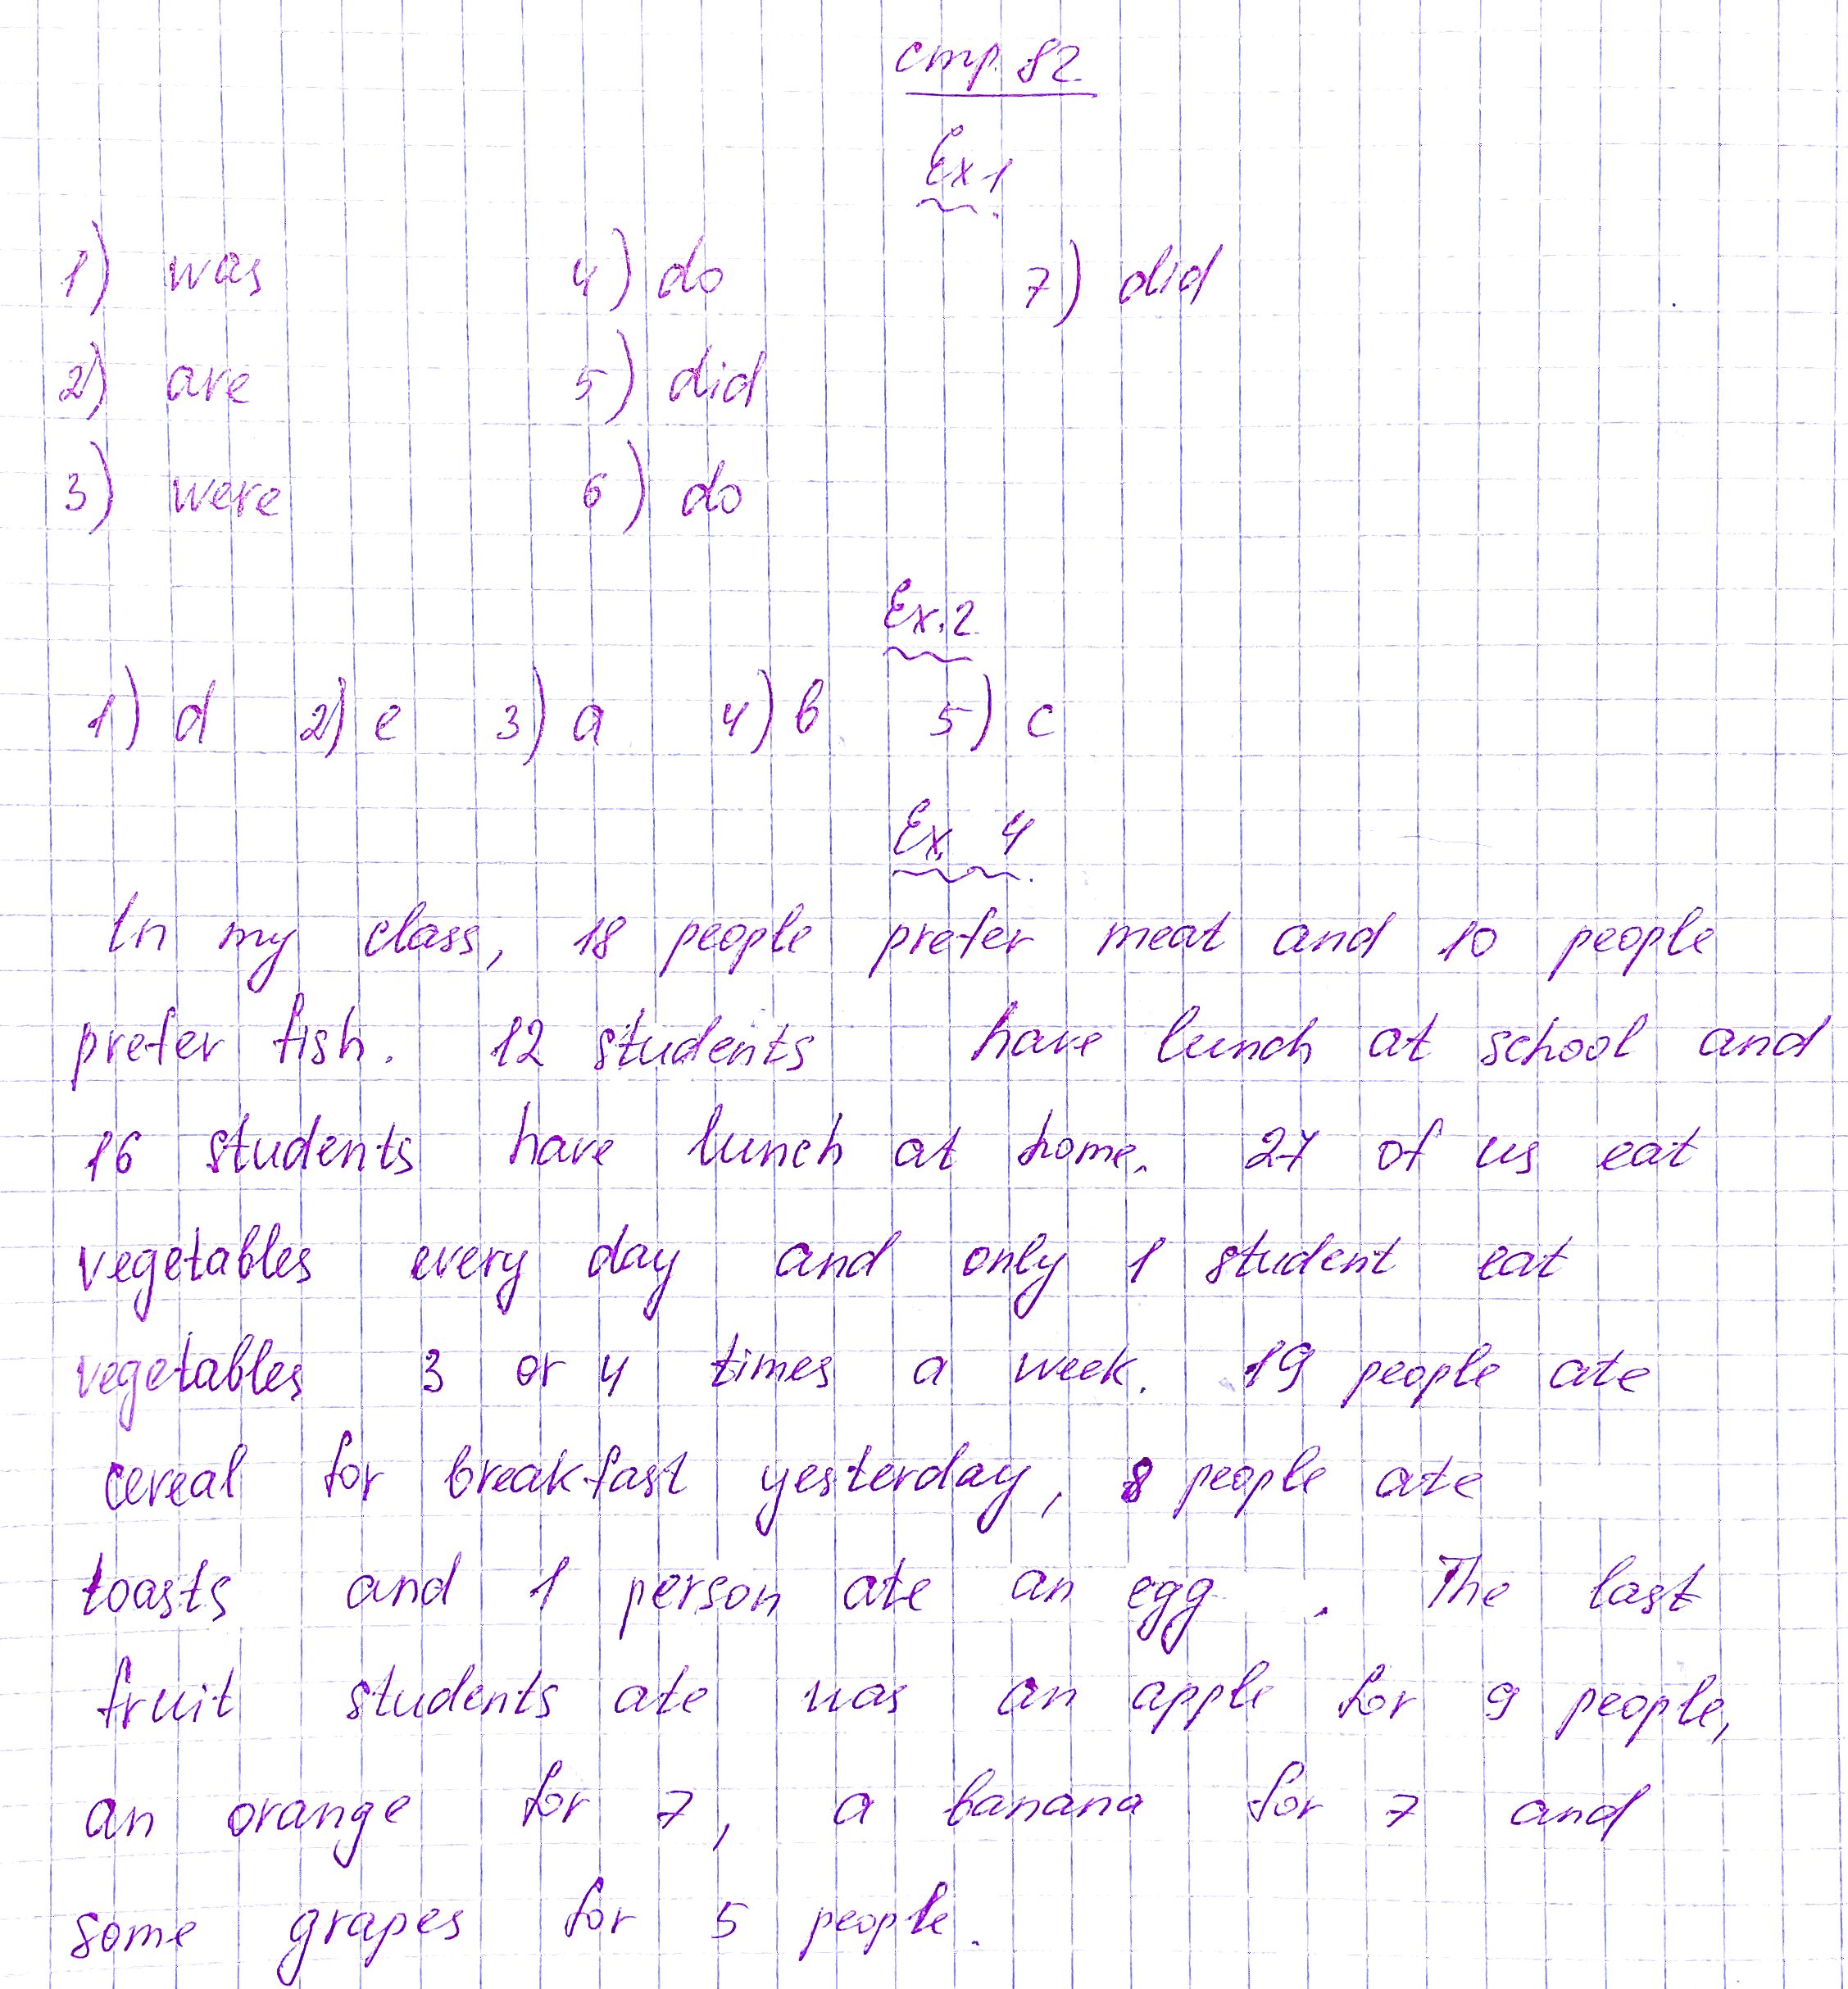 стр. 82
Ex 1
1) was 4) do 7) did
2) are 5) did
3) were 6) do
Ex. 2
1) d 2) e 3) a 4) b 5) c
Ex. 4
In my class, 18 people prefer meat and 10 people
prefer fish. 12 students have lunch at school and
16 students have lunch at home. 27 of us eat
vegetables every day and only 1 student eat
vegetables 3 or 4 times a week. 19 people ate
cereal for breakfast yesterday, 8 people ate
toasts and 1 person ate an egg. The last
fruit students ate was an apple for 9 people,
an orange for 7, a banana for 7 and
some grapes for 5 people.